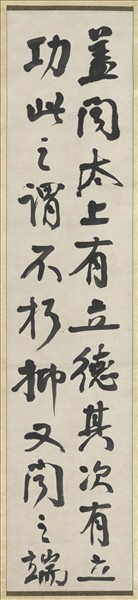 盖闻太上有立德其次有立
功此之谓不朽抑又闻之端